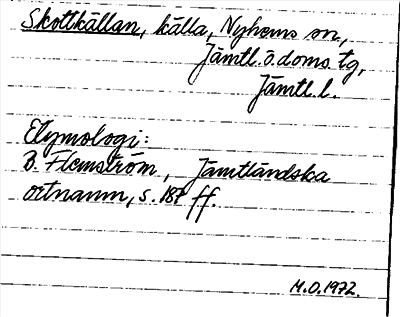 Skottkällan, källa, Nyhems sn,
Jämtl.ö.doms.tg,
Jämtl.l.
Etymologi:
B. Flemström, Jämtländska
ortnamn, s. 187 ff.
M.O.1972.